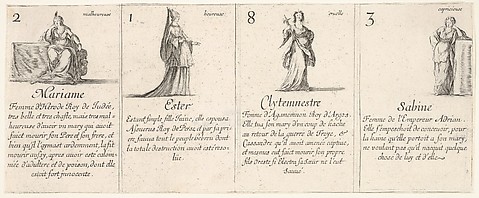 2 malheureuse
Mariame
Femme d'Hérode Roy de Judée,
tres belle et tres chaste, mais tres mal-
heureuse d'avoir un mary qui avoit
faict mourir son Pere et son frere, et
bien qu'il l'aymast ardemment, la fit
mourir aussy, apres avoir esté
d'adultere et de poison, dont elle
estoit fort innocente.
1 heureuse
Ester
Estant simple fille Juive, elle espousa
Assuerus Roy de Perse, et par sa pri-
ere, sauva tout le peuple dont
la totale destruction avoit esté
lüe.
8 cruelle
Clytemnestre
Femme d'Agamemnon Roy d'Argos.
Elle tua son mary d'un coup de hache
au retour de la guerre de Troye, &
Cassandre qu'il avoit amenée captive,
et mesmes eut faict mourir son propre
fils Oreste si Electra sa sœur ne l'eut
sauvé.
3 capricieuse
Sabine
Femme de l'Empereur Adrian.
Elle s'empeschoit de concevoir, pour
la haine qu'elle portoit a son mary,
ne voulant pas qu'il nasquit quelque
chose de luy et d'elle.